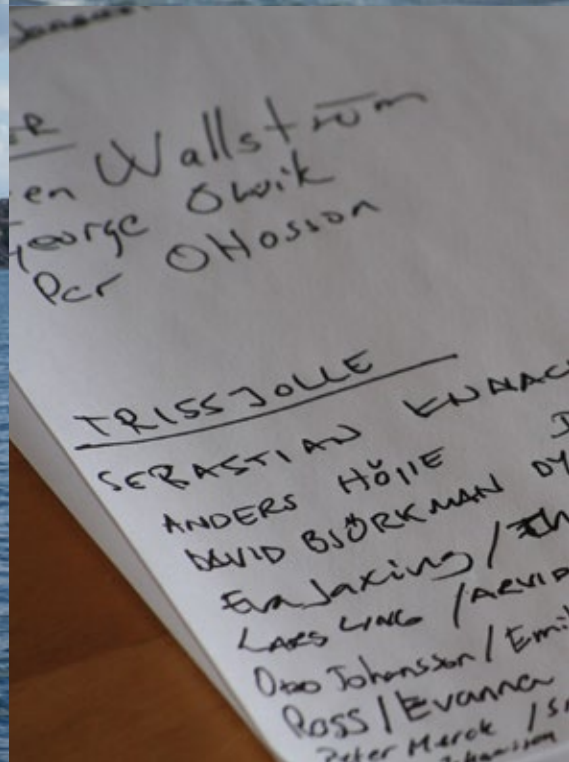 en Wallström
George Owik
Per Ottosson
TRISSJOLLE
SEBASTIAN
ANDERS HÖIJE
DAVID BJÖRKMAN DY
Eva Jaxing /
LARS LING / ARVID
Otto Johansson / Emil
Ross / Evanna
Peter Merck /